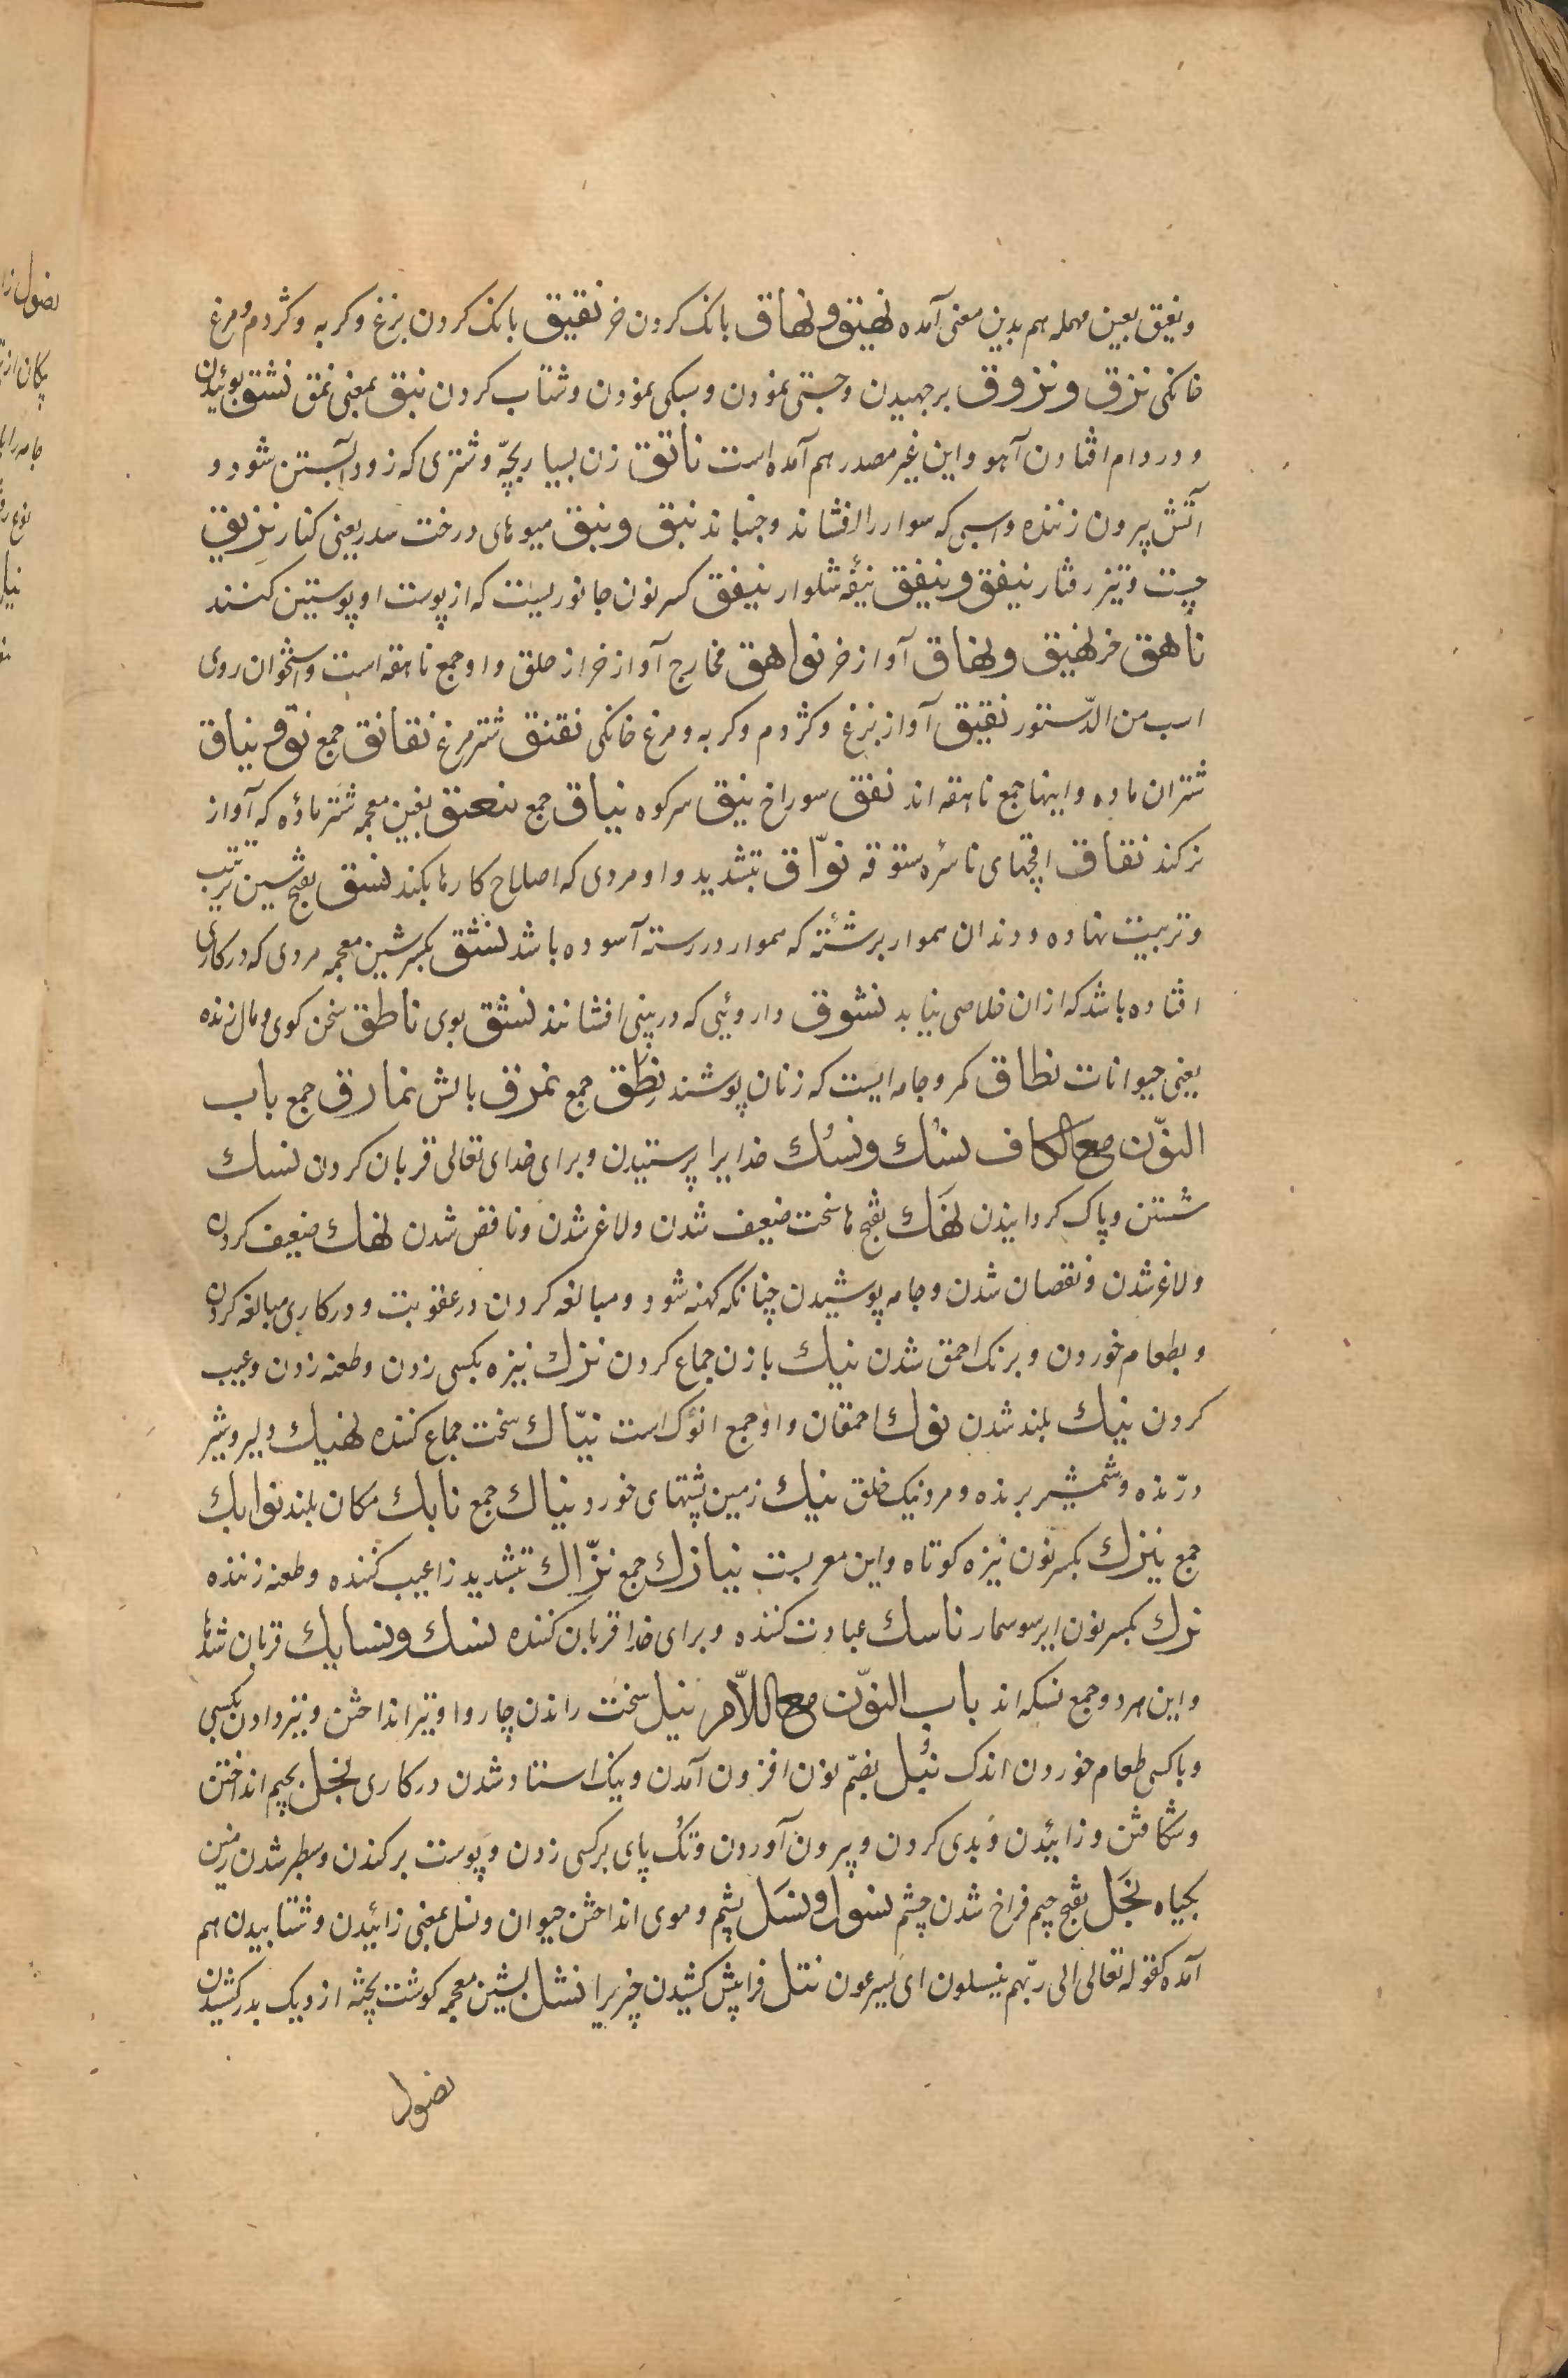 ونعیق بعین مهمله هم بدین معنی آمده نهیق ونهاق بانک کردن خر نقیق بانک کردن بزغ وکربه وکژدم ومرغ
خانکی نزق ونزوق برجهیدن وجستی نمودن وسبکی نمودن وشتاب کردن نبق بمعنی نمق نشق بوئیدن
ودر دام افتادن آهو واین غیر مصدر هم آمده است ناتق زن بسیار بچّه وشتری که زود آبستن شود و
آتش بیرون زننده واسبی که سوار را افشاند وجنباند نبق ونبق میوهای درخت سدر یعنی کنار نزیق
چست وتیز رفتار نیفق ونیفق نیفهٔ شلوار نیفق کسر نون جانوریست که از پوست او پوستین کنند
ناهق خر نهیق ونهاق آواز خر نواهق مخارج آواز خر از حلق واو جمع ناهقه است واستخوان روی
اسب من الدّستور نقیق آواز بزغ وکژدم وکربه ومرغ خانکی نقنق شترمرغ نقانق جمع نوق نیاق
شتران ماده واینها جمع ناقه اند نفق سوراخ نیق سرکوه نیاق جمع نغق بغین معجمه شتر ماده که آواز
نزکند نفاق اقچهای ناسره ستوقه نوّاق بتشدید واو مردی که اصلاح کارها بکند نسق بفتح سین ترتیب
وتربیت نهاده ودندان هموار برشته که هموار در رسته آسوده باشد نشق بکسر شین معجمه مردی که در کاری
افتاده باشد که ازان خلاصی نیابد نشوق داروئیی که در بینی افشانند نشق بوی ناطق سخن کوی ومال زنده
یعنی حیوانات نطاق کمر وجامه ایست که زنان پوشند نطق جمع نمرق بالش نمارق جمع باب
النوّن مع الکاف نسك ونسك خدایرا پرستیدن وبرای خدای تعالی قربان کردن نسك
شستن وپاک کردانیدن نهك بفتح ها سخت ضعیف شدن ولاغر شدن وناقص شدن نهك ضعیف کردن
ولاغر شدن ونقصان شدن وجامه پوشیدن چنانکه کهنه شود ومبالغه کردن در عقوبت ودر کاری مبالغه کردن
وبطعام خوردن وبرنک احمق شدن نیك بازن جماع کردن نزك نیزه بکسی زدن وطعنه زدن وعیب
کردن نبك بلند شدن نوك احمقان واو جمع انوک است نیّاك سخت جماع کننده نهیك دلیر وشیر
درّنده وشمشیر برنده ومرد نیک خلق نبك زمین پشتهای خورد نباك جمع نابك مکان بلند نوابك
جمع نیزك بکسر نون نیزه کوتاه واین معربست نیازك جمع نزّاك بتشدید زا عیب کننده وطعنه زننده
نزك بکسر نون ایر سوسمار ناسك عبادت کننده وبرای خدا قربان کننده نسك ونسایك قربان شدها
واین هردو جمع نسکه اند باب النوّن مع اللاّم نبل سخت راندن چاروا وتیر انداختن وتیر دادن بکسی
وباکسی طعام خوردن اندک نبُل بضمّ نون افزون آمدن ونیک استاد شدن در کاری نجل بجیم انداختن
وشکافتن وزائیدن وبدی کردن وبیرون آوردن وتک پای برکسی زدن وپوست برکندن وسطبر شدن زمین
بکیاه نجَل بفتح جیم فراخ شدن چشم نسول ونسَل پشم وموی انداختن حیوان ونسل بمعنی زائیدن وشتابیدن هم
آمده کقوله تعالی الی ربّهم ینسلون ای یسرعون نتل فراپیش کشیدن چیزیرا نشل بشین معجمه کوشت پخته از دیک بدر کشیدن
نضول